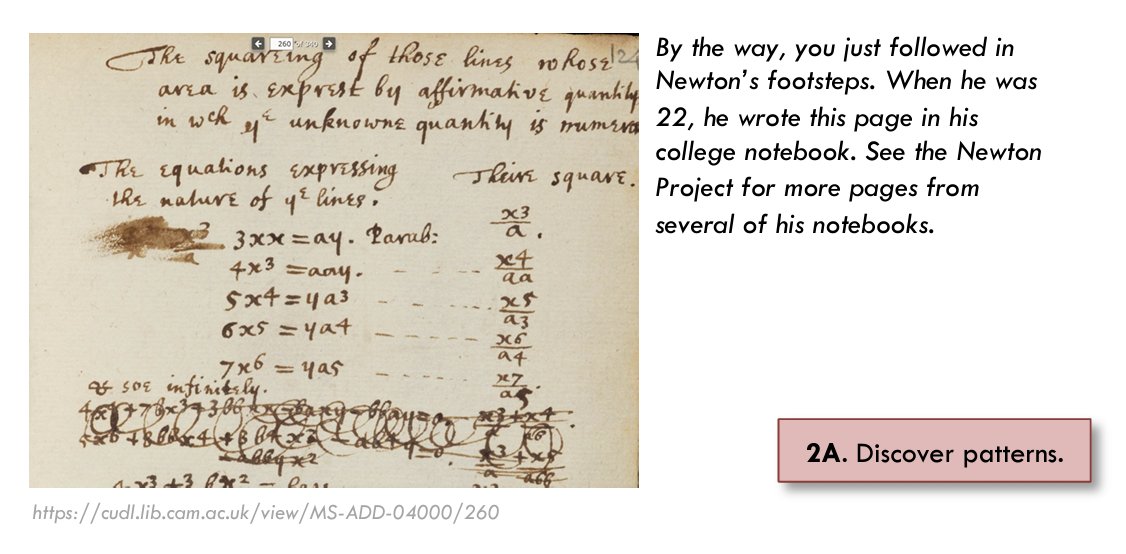 260 of 340
124
The squareing of those lines whose
area is exprest by affirmative quantity
in wch ye unknowne quantity is numera
The equations expressing
the nature of ye lines.
Theire square.
3xx = ay. Parab: x3/a.
4x3 = aay. x4/aa
5x4 = ya3 x5/a3
6x5 = ya4 x6/a4
7x6 = ya5 x7/a5.
& soe infinitely.
By the way, you just followed in
Newton's footsteps. When he was
22, he wrote this page in his
college notebook. See the Newton
Project for more pages from
several of his notebooks.
2A. Discover patterns.
https://cudl.lib.cam.ac.uk/view/MS-ADD-04000/260